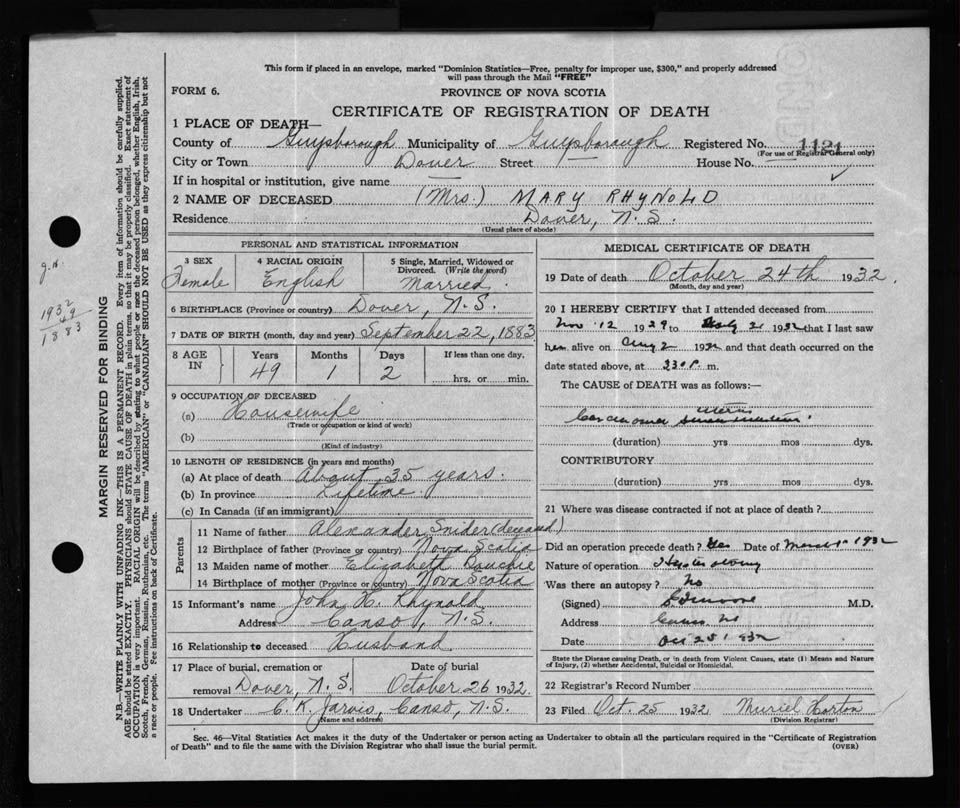 This form if placed in an envelope, marked "Dominion Statistics—Free, penalty for improper use, $300," and properly addressed
will pass through the Mail "FREE"
FORM 6.
PROVINCE OF NOVA SCOTIA
CERTIFICATE OF REGISTRATION OF DEATH
1 PLACE OF DEATH—
County of Guysborough Municipality of Guysborough Registered No. 1121
(For use of Registrar General only)
City or Town Dover Street — House No. —
If in hospital or institution, give name —
2 NAME OF DECEASED (Mrs.) MARY RHYNOLD
Residence Dover, N.S.
(Usual place of abode)
PERSONAL AND STATISTICAL INFORMATION
3 SEX 4 RACIAL ORIGIN 5 Single, Married, Widowed or
Divorced. (Write the word)
Female English Married.
6 BIRTHPLACE (Province or country) Dover, N.S.
7 DATE OF BIRTH (month, day and year) September 22, 1883
8 AGE IN Years Months Days If less than one day,
49 1 2 hrs. or min.
9 OCCUPATION OF DECEASED
(a) Housewife
(Trade or occupation or kind of work)
(b)
(Kind of industry)
10 LENGTH OF RESIDENCE (in years and months)
(a) At place of death About 35 years.
(b) In province Lifetime
(c) In Canada (if an immigrant)
Parents
11 Name of father Alexander Snider (deceased)
12 Birthplace of father (Province or country) Nova Scotia
13 Maiden name of mother Elizabeth
14 Birthplace of mother (Province or country) Nova Scotia
15 Informant's name John H. Rhynold
Address Canso, N.S.
16 Relationship to deceased Husband
17 Place of burial, cremation or Date of burial
removal Dover, N.S. October 26 1932.
18 Undertaker C. K. Jarvis, Canso, N.S.
(Name and address)
MEDICAL CERTIFICATE OF DEATH
19 Date of death October 24th 1932
(Month, day and year)
20 I HEREBY CERTIFY that I attended deceased from
Nov 12 1929 to 1932 that I last saw
her alive on Aug 2 1932 and that death occurred on
date stated above, at 230 P. m.
The CAUSE of DEATH was as follows:—
uterus
Carcinoma
(duration) yrs mos dys.
CONTRIBUTORY
(duration) yrs mos dys.
21 Where was disease contracted if not at place of death?
Did an operation precede death? Yes Date of March 1932
Nature of operation
Was there an autopsy? No
(Signed) M.D.
Address Canso NS
Date Oct 25 1932
State the Disease causing Death, or in death from Violent Causes, state (1) Means and Nature
of Injury, (2) whether Accidental, Suicidal or Homicidal.
22 Registrar's Record Number
23 Filed Oct. 25 1932 Muriel Horton
(Division Registrar)
Sec. 46—Vital Statistics Act makes it the duty of the Undertaker or person acting as Undertaker to obtain all the particulars required in the "Certificate of Registration
of Death" and to file the same with the Division Registrar who shall issue the burial permit. (OVER)
MARGIN RESERVED FOR BINDING
N.B.—WRITE PLAINLY WITH UNFADING INK—THIS IS A PERMANENT RECORD. Every item of information should be carefully supplied.
AGE should be stated EXACTLY. PHYSICIANS should STATE CAUSE OF DEATH in plain terms, so that it may be properly classified. Exact statement of
OCCUPATION is very important. RACIAL ORIGIN will be described by stating to what people or race the deceased person belonged, whether English, Irish,
Scotch, French, German, Russian, Ruthenian, etc. The terms "AMERICAN" or "CANADIAN" SHOULD NOT BE USED as they express citizenship but not
a race or people. See instructions on back of Certificate.
1932
49
1883